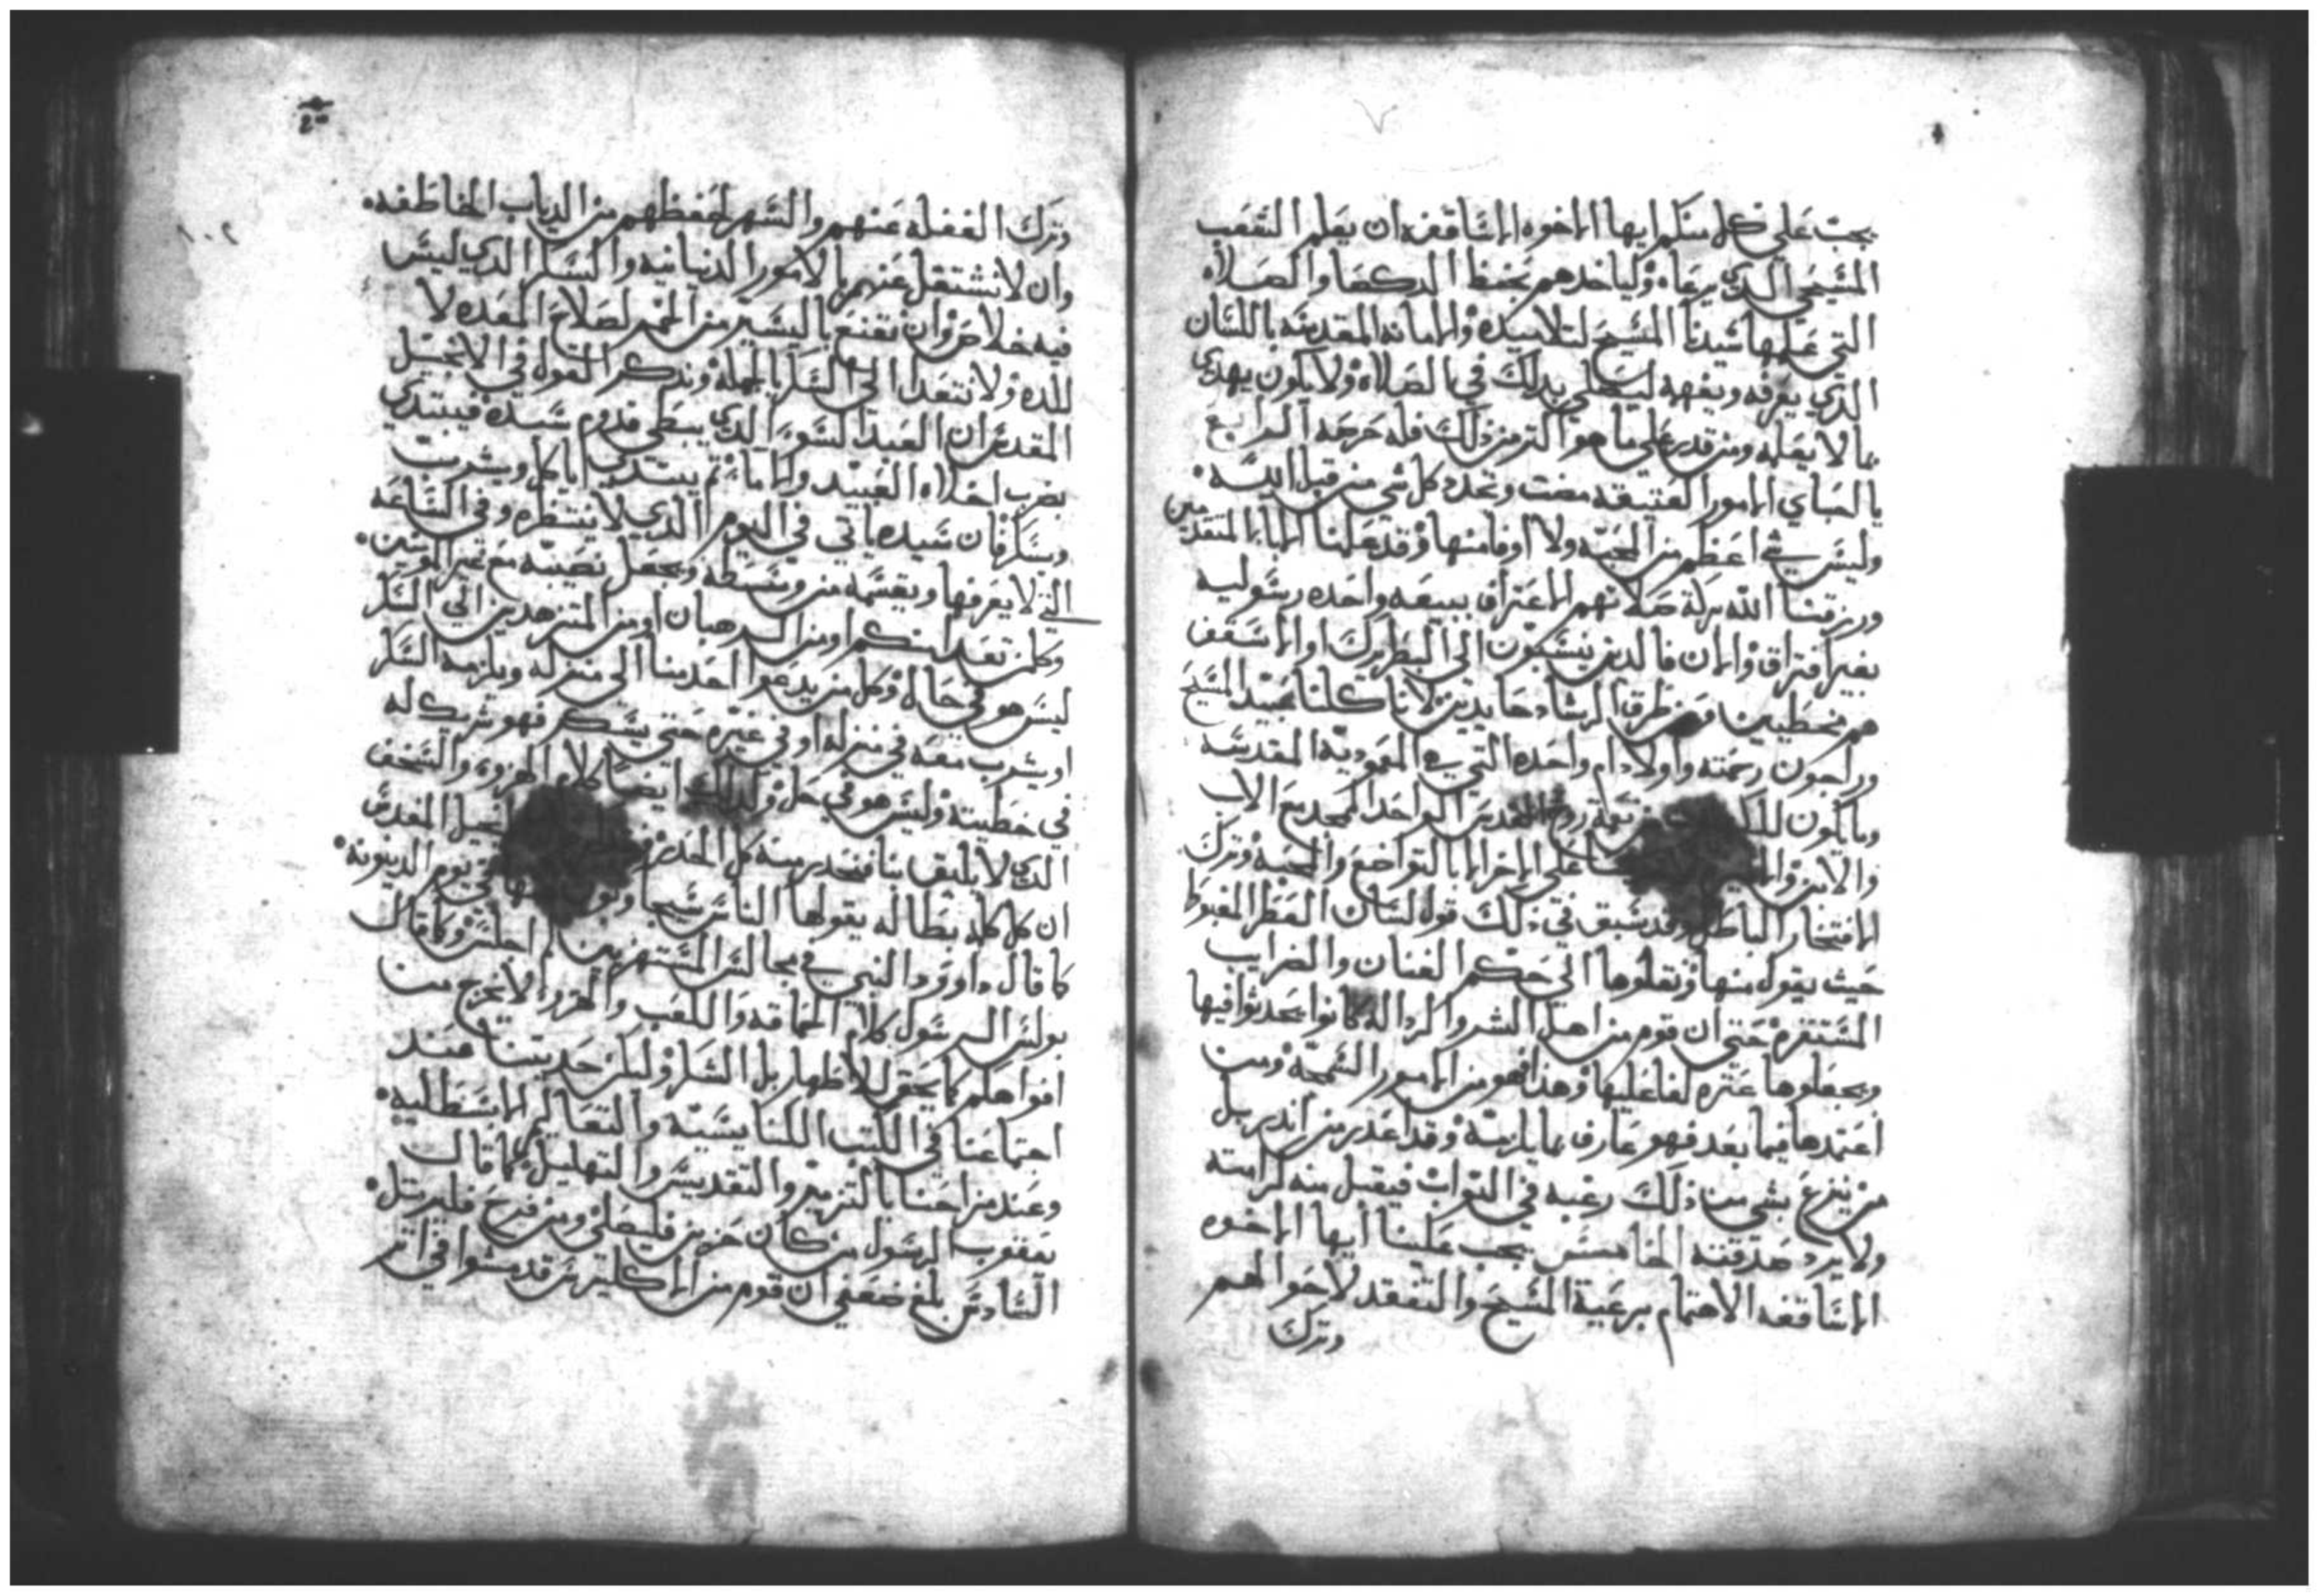 يجب على كل منكم ايها الاخوه الاساقفه ان يعلم الشعب
المسيحي الدي يرعاه وياخدهم بحفظ الدكصا والصلاه
التي علمها سيدنا المسيح لتلاميده والامانه المقدسه باللسان
الدي يعرفه ويفهه ليصلي بدلك في الصلاه ولا يكون يهدي
بما لا يعلمه ومن قدر على ما هو اكتر من ذلك فله حرمه الرابع
يا احباي الامور العتيقه مضت وتجدد كل شي من قبل الله
وليس شي اعظم من المحبه ولا اوفا منها وقد علمنا الابا المتقدمين
ورزقنا الله بركة صلاتهم الاعتراف ببيعه واحده رسوليه
بغير افتراق والان فالدين ينسبون الى البطريرك او الاسقف
هم مخطيين ومن طرق الرشاد حايدين لاننا كلنا عبيد المسيح
وراجون رحمته واولاد ام واحده التي هي المعموديه المقدسه
وما يكون للكل روح القدس الواحد الممجد مع الاب
والابن على الاخر الا بالتواضع والمحبه وترك
الافتخار الباطل وقد سبق في ذلك قول لسان العطر المغبوط
حيث يقول منها ونقلوها الى حكم الفنان والضرايب
المستقره حتى ان قوم من اهل الشر والرداله كانوا يحدثوا فيها
ويجعلوها عتره لفاعليها وهذا فهو من الامور السمجه ومن
اعتمدها فيما بعد فهو عارف بما يلزمه وقد اعدر من اندر بل
من ينزع بشي من ذلك رغبه في التواب فيقبل منه كرامته
ولا يرد صدقته الخامس يجب علينا ايها الاخوه
الاساقفه الاهتمام برعية المسيح والتفقد لاحوالهم
وترك
١٠٢
وترك الغفله عنهم والسهر لحفظهم من الدياب الخاطفه
وان لا نشتغل عنهم بالامور الدنيانيه والسكر الدي ليس
فيه خلاص وان نقنع باليسير من الخمر لصلاح المعده لا
للده ولا نتعدا الى السكر بالجمله وندكر القول في الانجيل
المقدس ان العبد السو الدي يبطي قدوم سيده فيبتدي
بضرب اخلاه العبيد والاما تم يبتدي ياكل ويشرب
ويسكر فان سيده ياتي في اليوم الدي لا ينتظره وفي الساعه
التي لا يعرفها ويقسمه من وسطه ويجعل نصيبه مع غير المومنين
وكل من تعدا منكم او من الرهبان او من المتزهدين الى السكر
ليس هو في حال وكل من يدعوا احد منا الى منزله ويلزمه السكر
او يشرب معه في منزله او في غيره حتى يسكر فهو شريك له
في خطيته وليس هو في حل وكدلك ايضا كلام الهزو والسخف
الدي لا يليق بنا فنحدر منه كل الحدر الانجيل المقدس
ان كل كلمه بطاله يقولها الناس في يوم الدينونه
كما قال داوود النبي في مجالس المستهزين لم اجلس وكما قال
بولس الرسول كلام الحماقه واللعب والهزو لا يخرج من
افواهكم كما يحق للاطهار بل الشكر وليكن حديتنا عند
اجتماعنا في الكتب الكنايسيه والتعاليم الابسطليه
وعند مزاحنا بالتزمير والتقديس والتهليل كما قال
يعقوب الرسول من كان حزين فليصلي ومن فرح فليرتل
السادس بلغ ضعفي ان قوم من الاكليرس قد مشوا في اتر